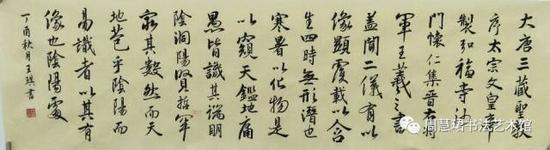 大唐三藏聖教
序太宗文皇帝
製弘福寺沙
門懷仁集晉右將
軍王羲之書
蓋聞二儀有
像顯覆載以含
生四時無形潛
寒暑以化物是
以窺天鑑地庸
愚皆識其端明
陰洞陽賢哲罕
窮其數然而天
地苞乎陰陽而
易識者以其有
像也陰陽處
丁酉秋月王琪書
周慧珺书法艺术馆